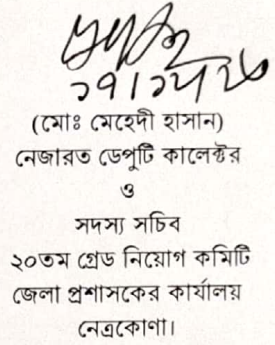 (মোঃ মেহেদী হাসান)
নেজারত ডেপুটি কালেক্টর
ও
সদস্য সচিব
২০তম গ্রেড নিয়োগ কমিটি
জেলা প্রশাসকের কার্যালয়
নেত্রকোণা।